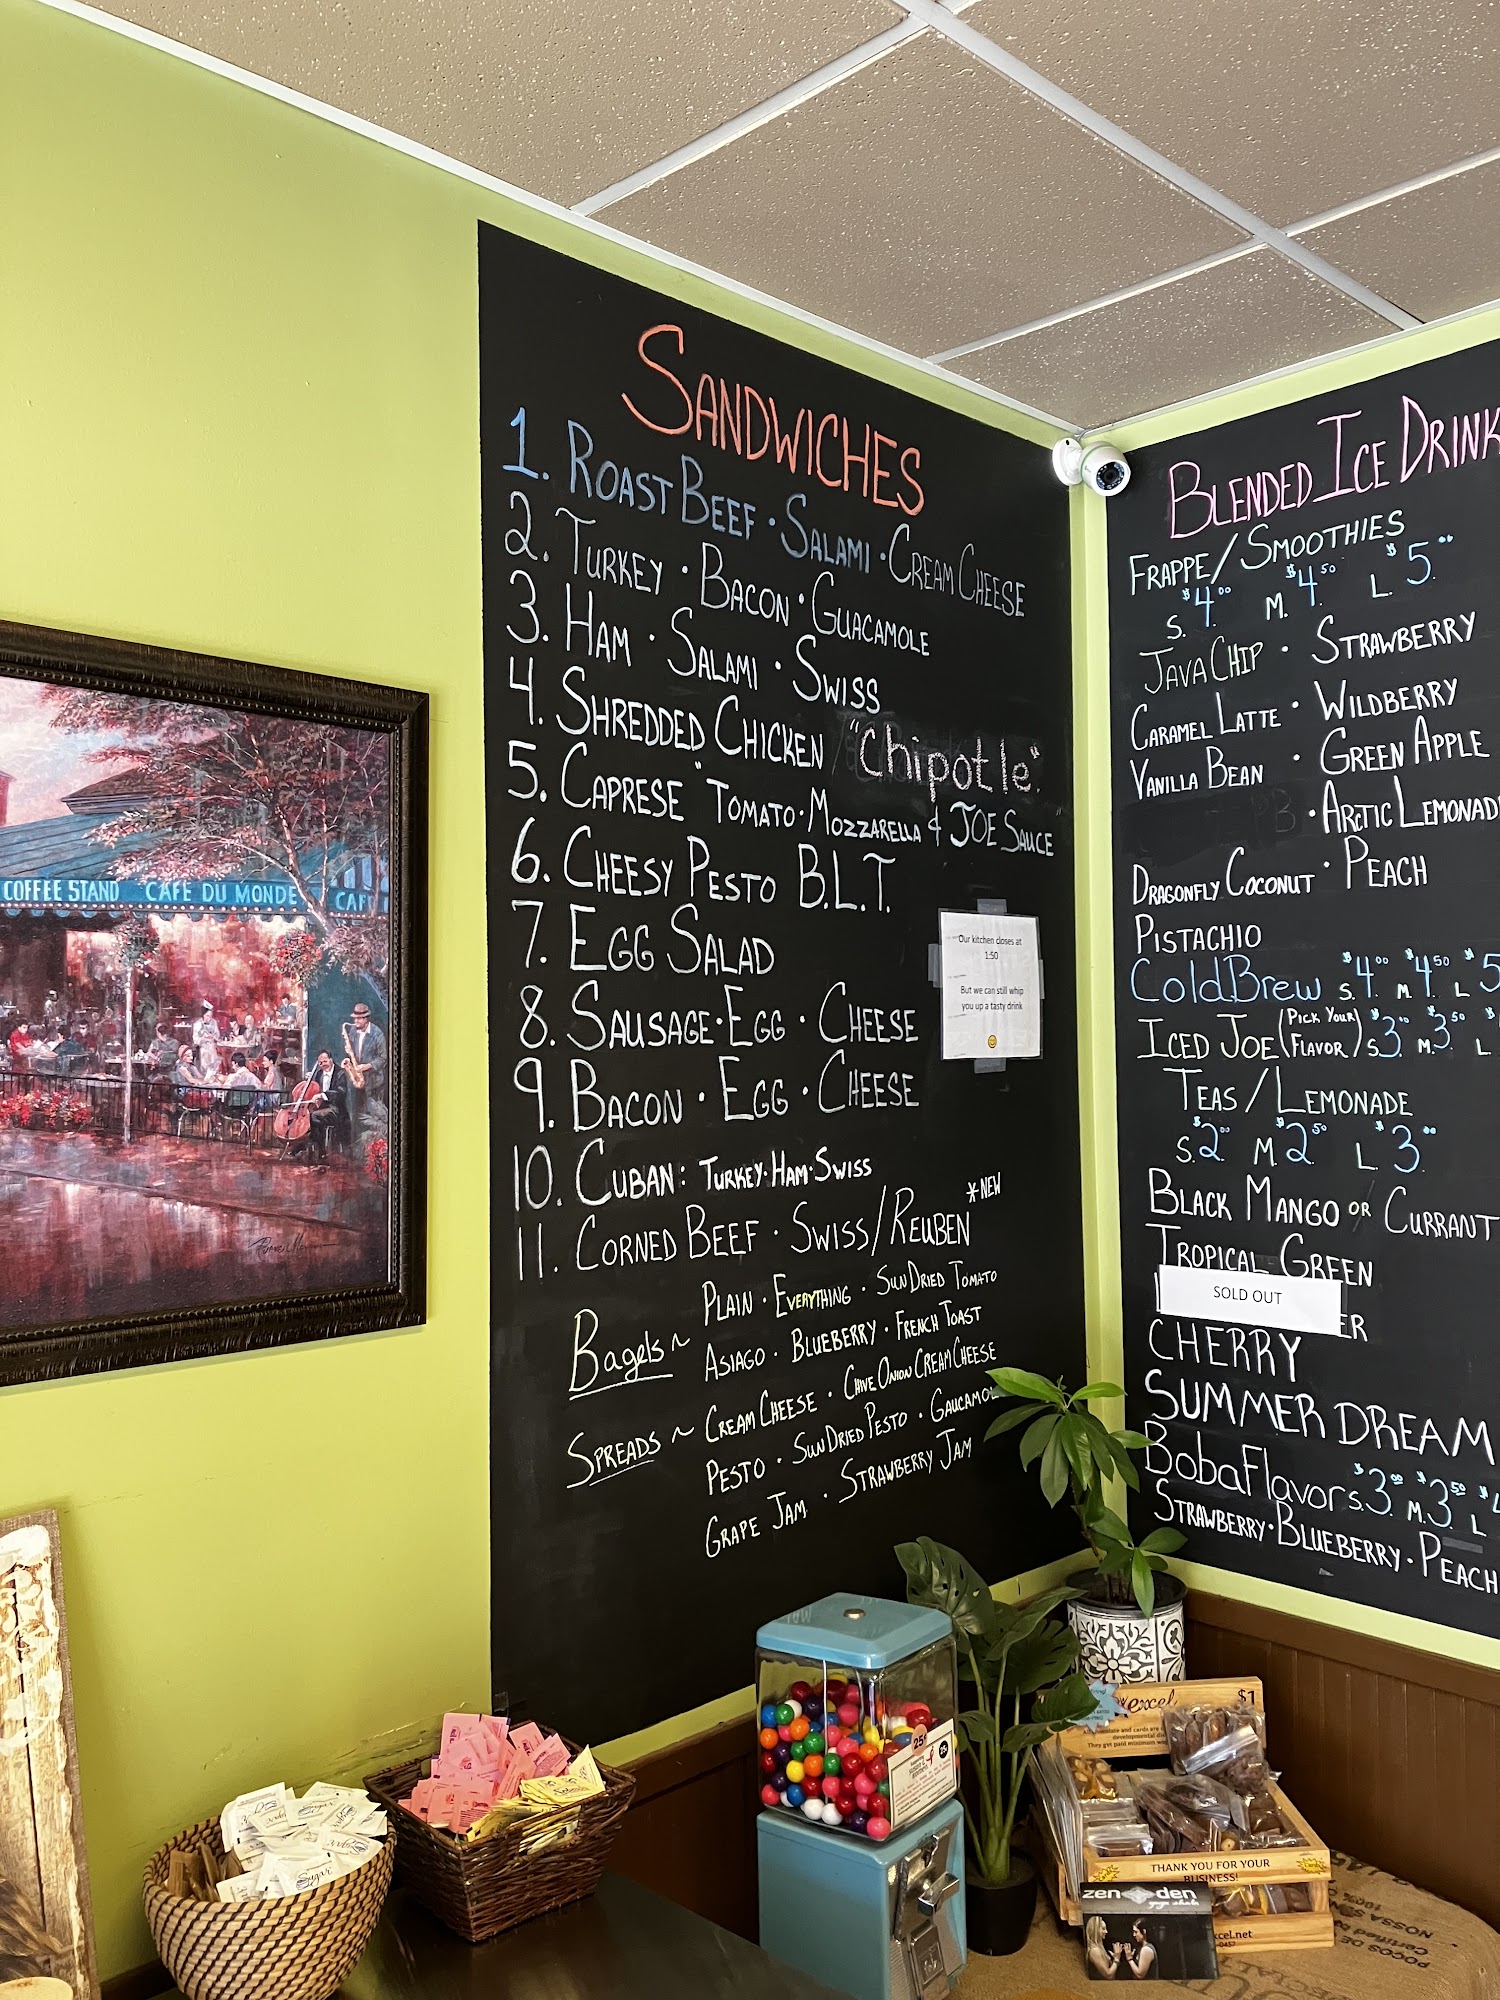 SANDWICHES
1. ROAST BEEF · SALAMI · CREAM CHEESE
2. TURKEY · BACON · GUACAMOLE
3. HAM · SALAMI · SWISS
4. SHREDDED CHICKEN "Chipotle"
5. CAPRESE "TOMATO · MOZZARELLA & JOE SAUCE"
6. CHEESY PESTO B.L.T.
7. EGG SALAD
8. SAUSAGE · EGG · CHEESE
9. BACON · EGG · CHEESE
10. CUBAN: TURKEY · HAM · SWISS
11. CORNED BEEF · SWISS/REUBEN *NEW
Bagels ~ PLAIN · EVERYTHING · SUN DRIED TOMATO
ASIAGO · BLUEBERRY · FRENCH TOAST
SPREADS ~ CREAM CHEESE · CHIVE ONION CREAM CHEESE
PESTO · SUN DRIED PESTO · GAUCAMOL
GRAPE JAM · STRAWBERRY JAM
Our kitchen closes at
1:50
But we can still whip
you up a tasty drink
BLENDED ICE DRINK
FRAPPE/SMOOTHIES
S. $4.00 M. $4.50 L. $5.00
JAVA CHIP · STRAWBERRY
CARAMEL LATTE · WILDBERRY
VANILLA BEAN · GREEN APPLE
· ARCTIC LEMONADE
DRAGONFLY COCONUT · PEACH
PISTACHIO
Cold Brew S. $4.00 M. $4.50 L $5
ICED JOE (PICK YOUR FLAVOR) S $3.00 M. $3.50 L $
TEAS / LEMONADE
S. $2.00 M $2.50 L $3.00
BLACK MANGO OR CURRANT
TROPICAL GREEN
SOLD OUT
ER
CHERRY
SUMMER DREAM
Boba Flavors S. $3.00 M. $3.50 L $4
STRAWBERRY · BLUEBERRY · PEACH
COFFEE STAND CAFE DU MONDE CAF
25¢
25¢
Sugar
excel $1
THANK YOU FOR YOUR
BUSINESS!
zen den
yoga shala
xcel.net